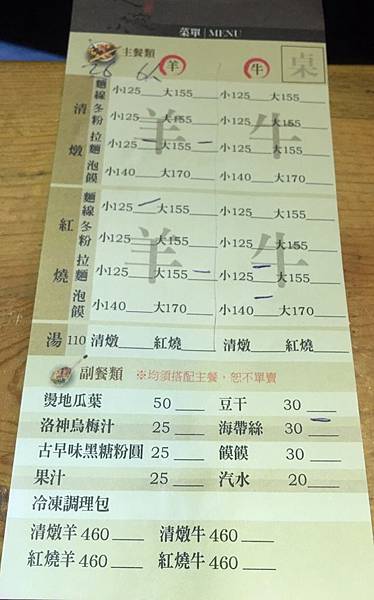 菜單 | MENU
主餐類 羊 牛 桌
26
清燉
麵線 小125 大155 小125 大155
冬粉 小125 大155 小125 大155
拉麵 小125 大155 小125 大155
泡饃 小140 大170 小140 大170
羊 牛
紅燒
麵線 小125 大155 小125 大155
冬粉 小125 大155 小125 大155
拉麵 小125 大155 小125 大155
泡饃 小140 大170 小140 大170
羊 牛
湯 110 清燉 紅燒 清燉 紅燒
副餐類 ※均須搭配主餐,恕不單賣
燙地瓜葉 50 豆干 30
洛神烏梅汁 25 海帶絲 30
古早味黑糖粉圓 25 饃饃 30
果汁 25 汽水 20
冷凍調理包
清燉羊 460 清燉牛 460
紅燒羊 460 紅燒牛 460